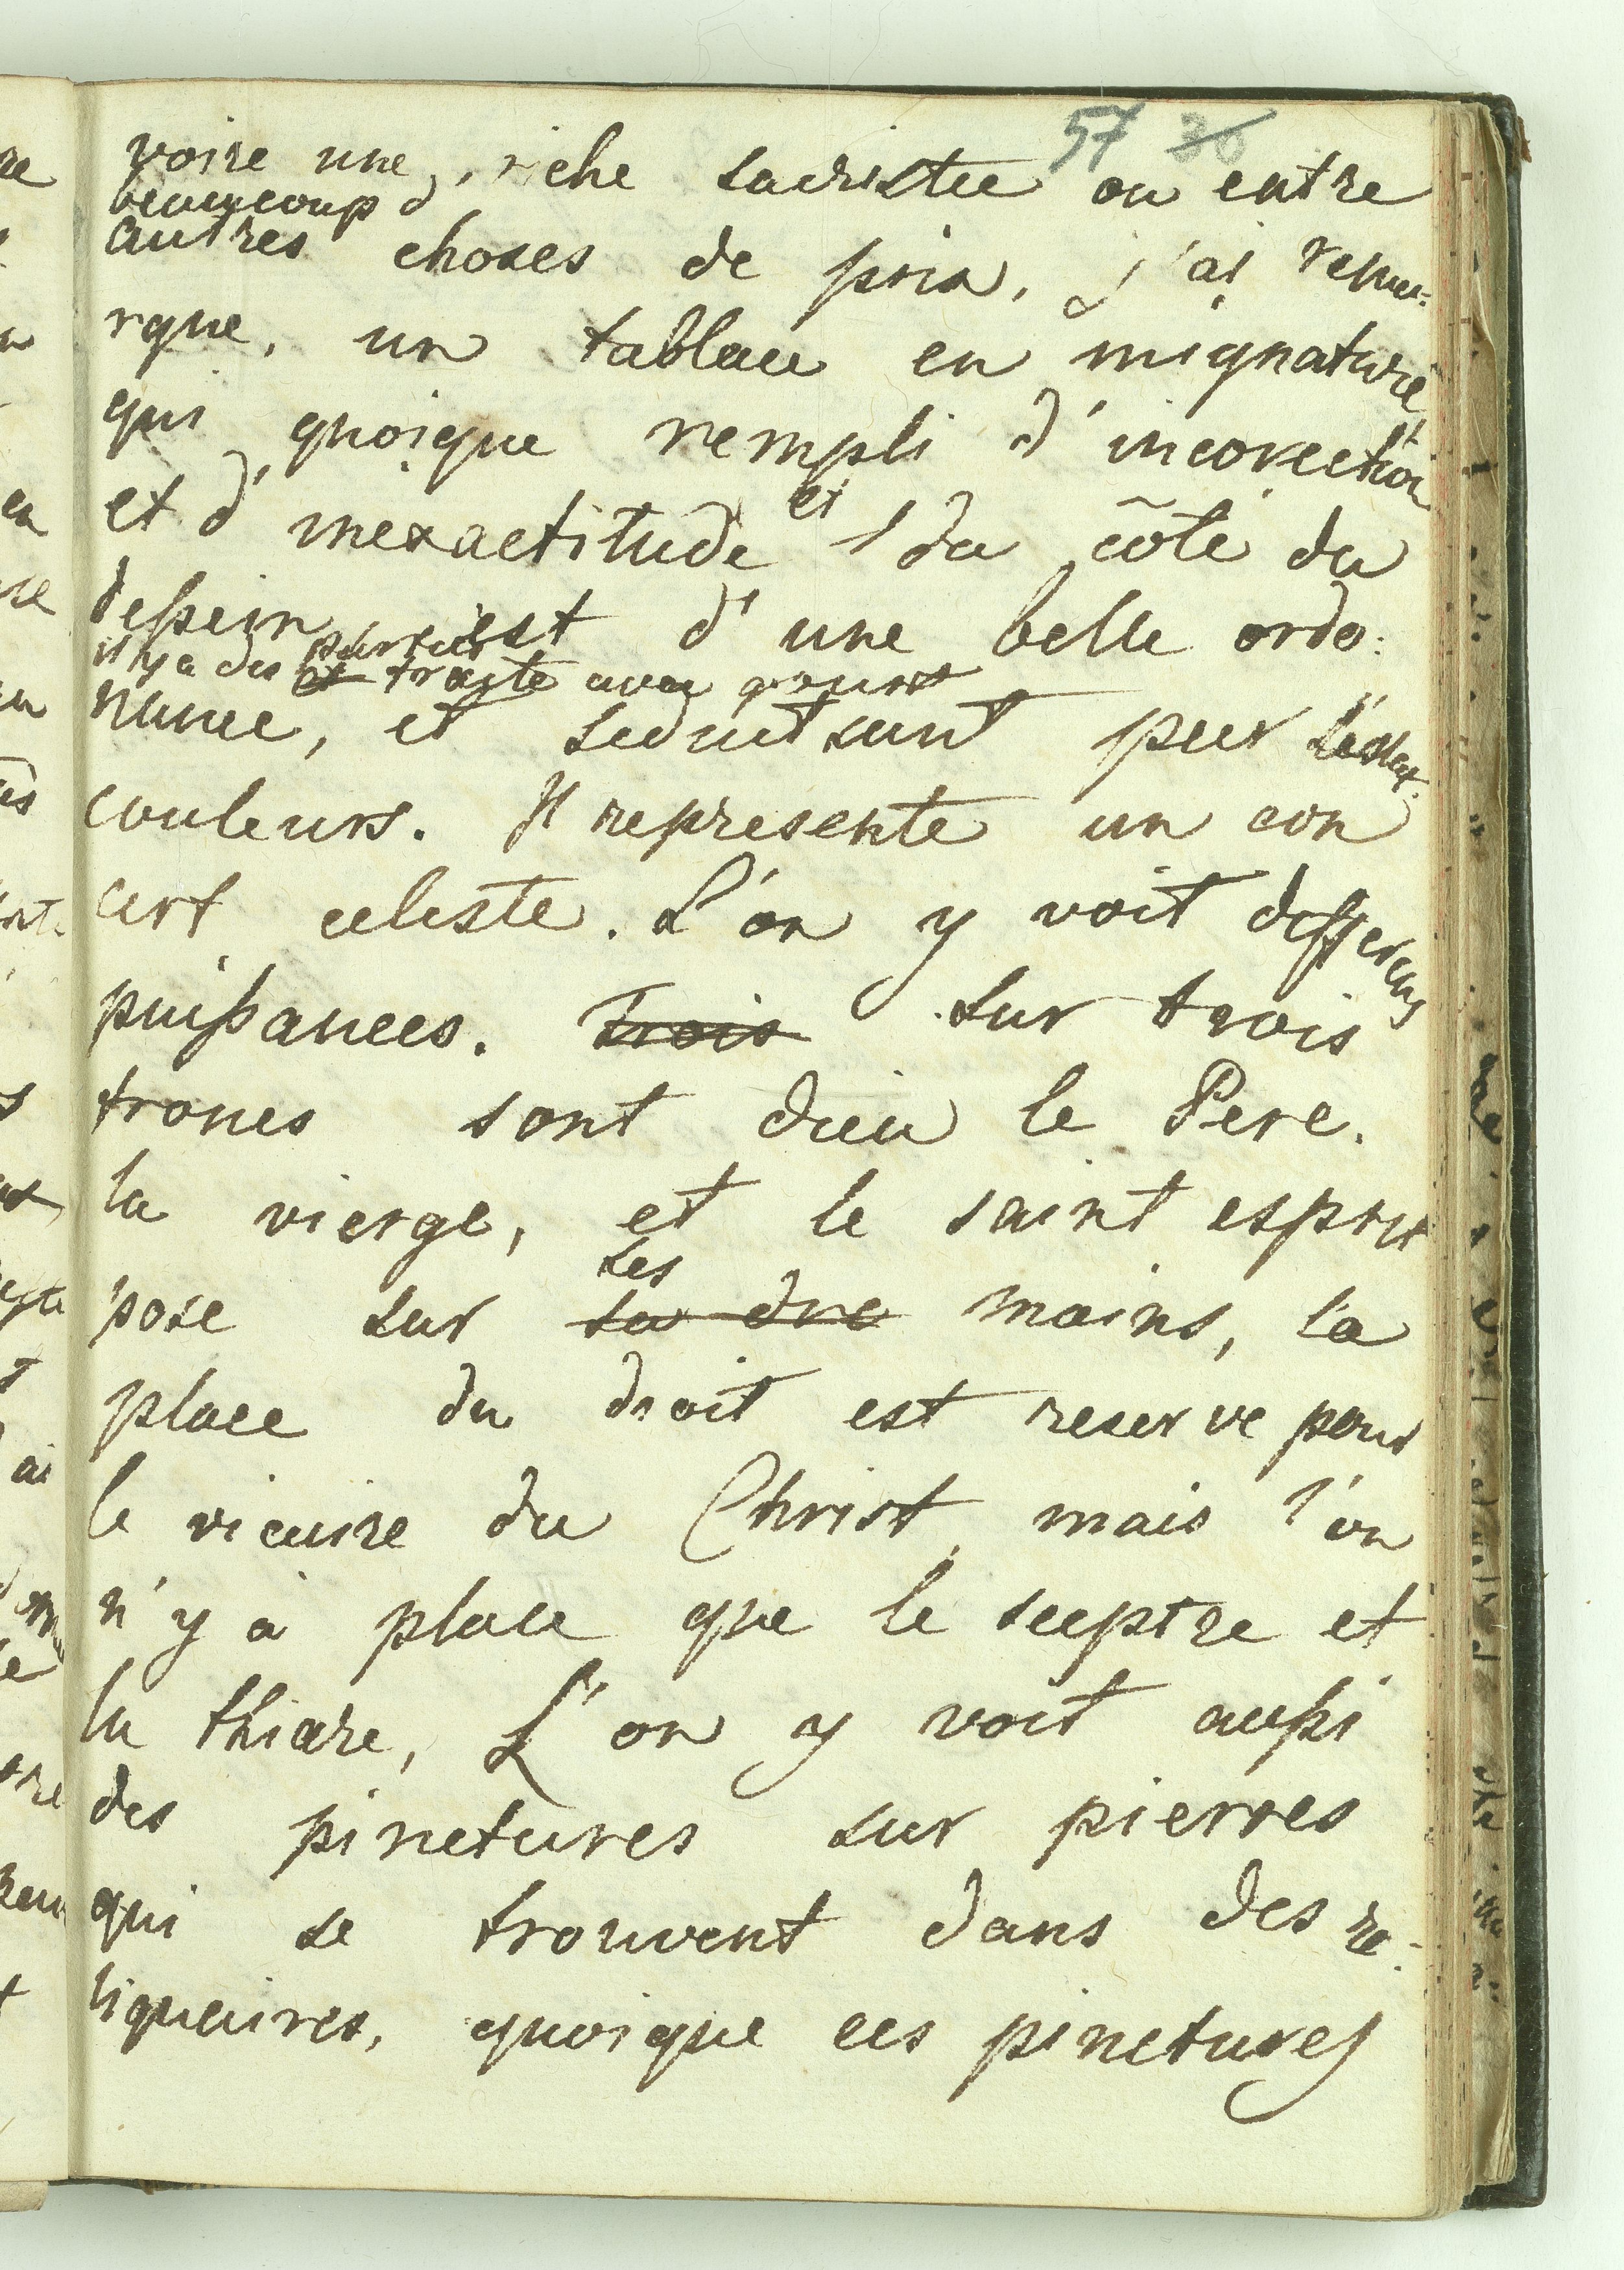 57 36
voire une, riche sacristee ou entre
beaucoup d'
autres choses de prix, j'ai remar=
rque, un tableau en mignature,
qui quoique rempli d'incorection
et d'inexactitude et du côté du
dessein est d'une belle ordo:
il y a des parties et traite avec goust
nance, et seduitsant par
couleurs. Il represente un con
cert celeste. L'on y voit differens
puissances. Trois sur trois
trones sont dieu le Pere.
la vierge, et le saint esprit
ses
pose sur sa dre mains, la
place du droit est reserve pour
le vicaire du Christ, mais l'on
n'y a place que le sceptre et
la thiare, L'on y voit aussi
des pinctures sur pierres
qui se trouvent dans des re:
liquaires, quoique ces pinctures